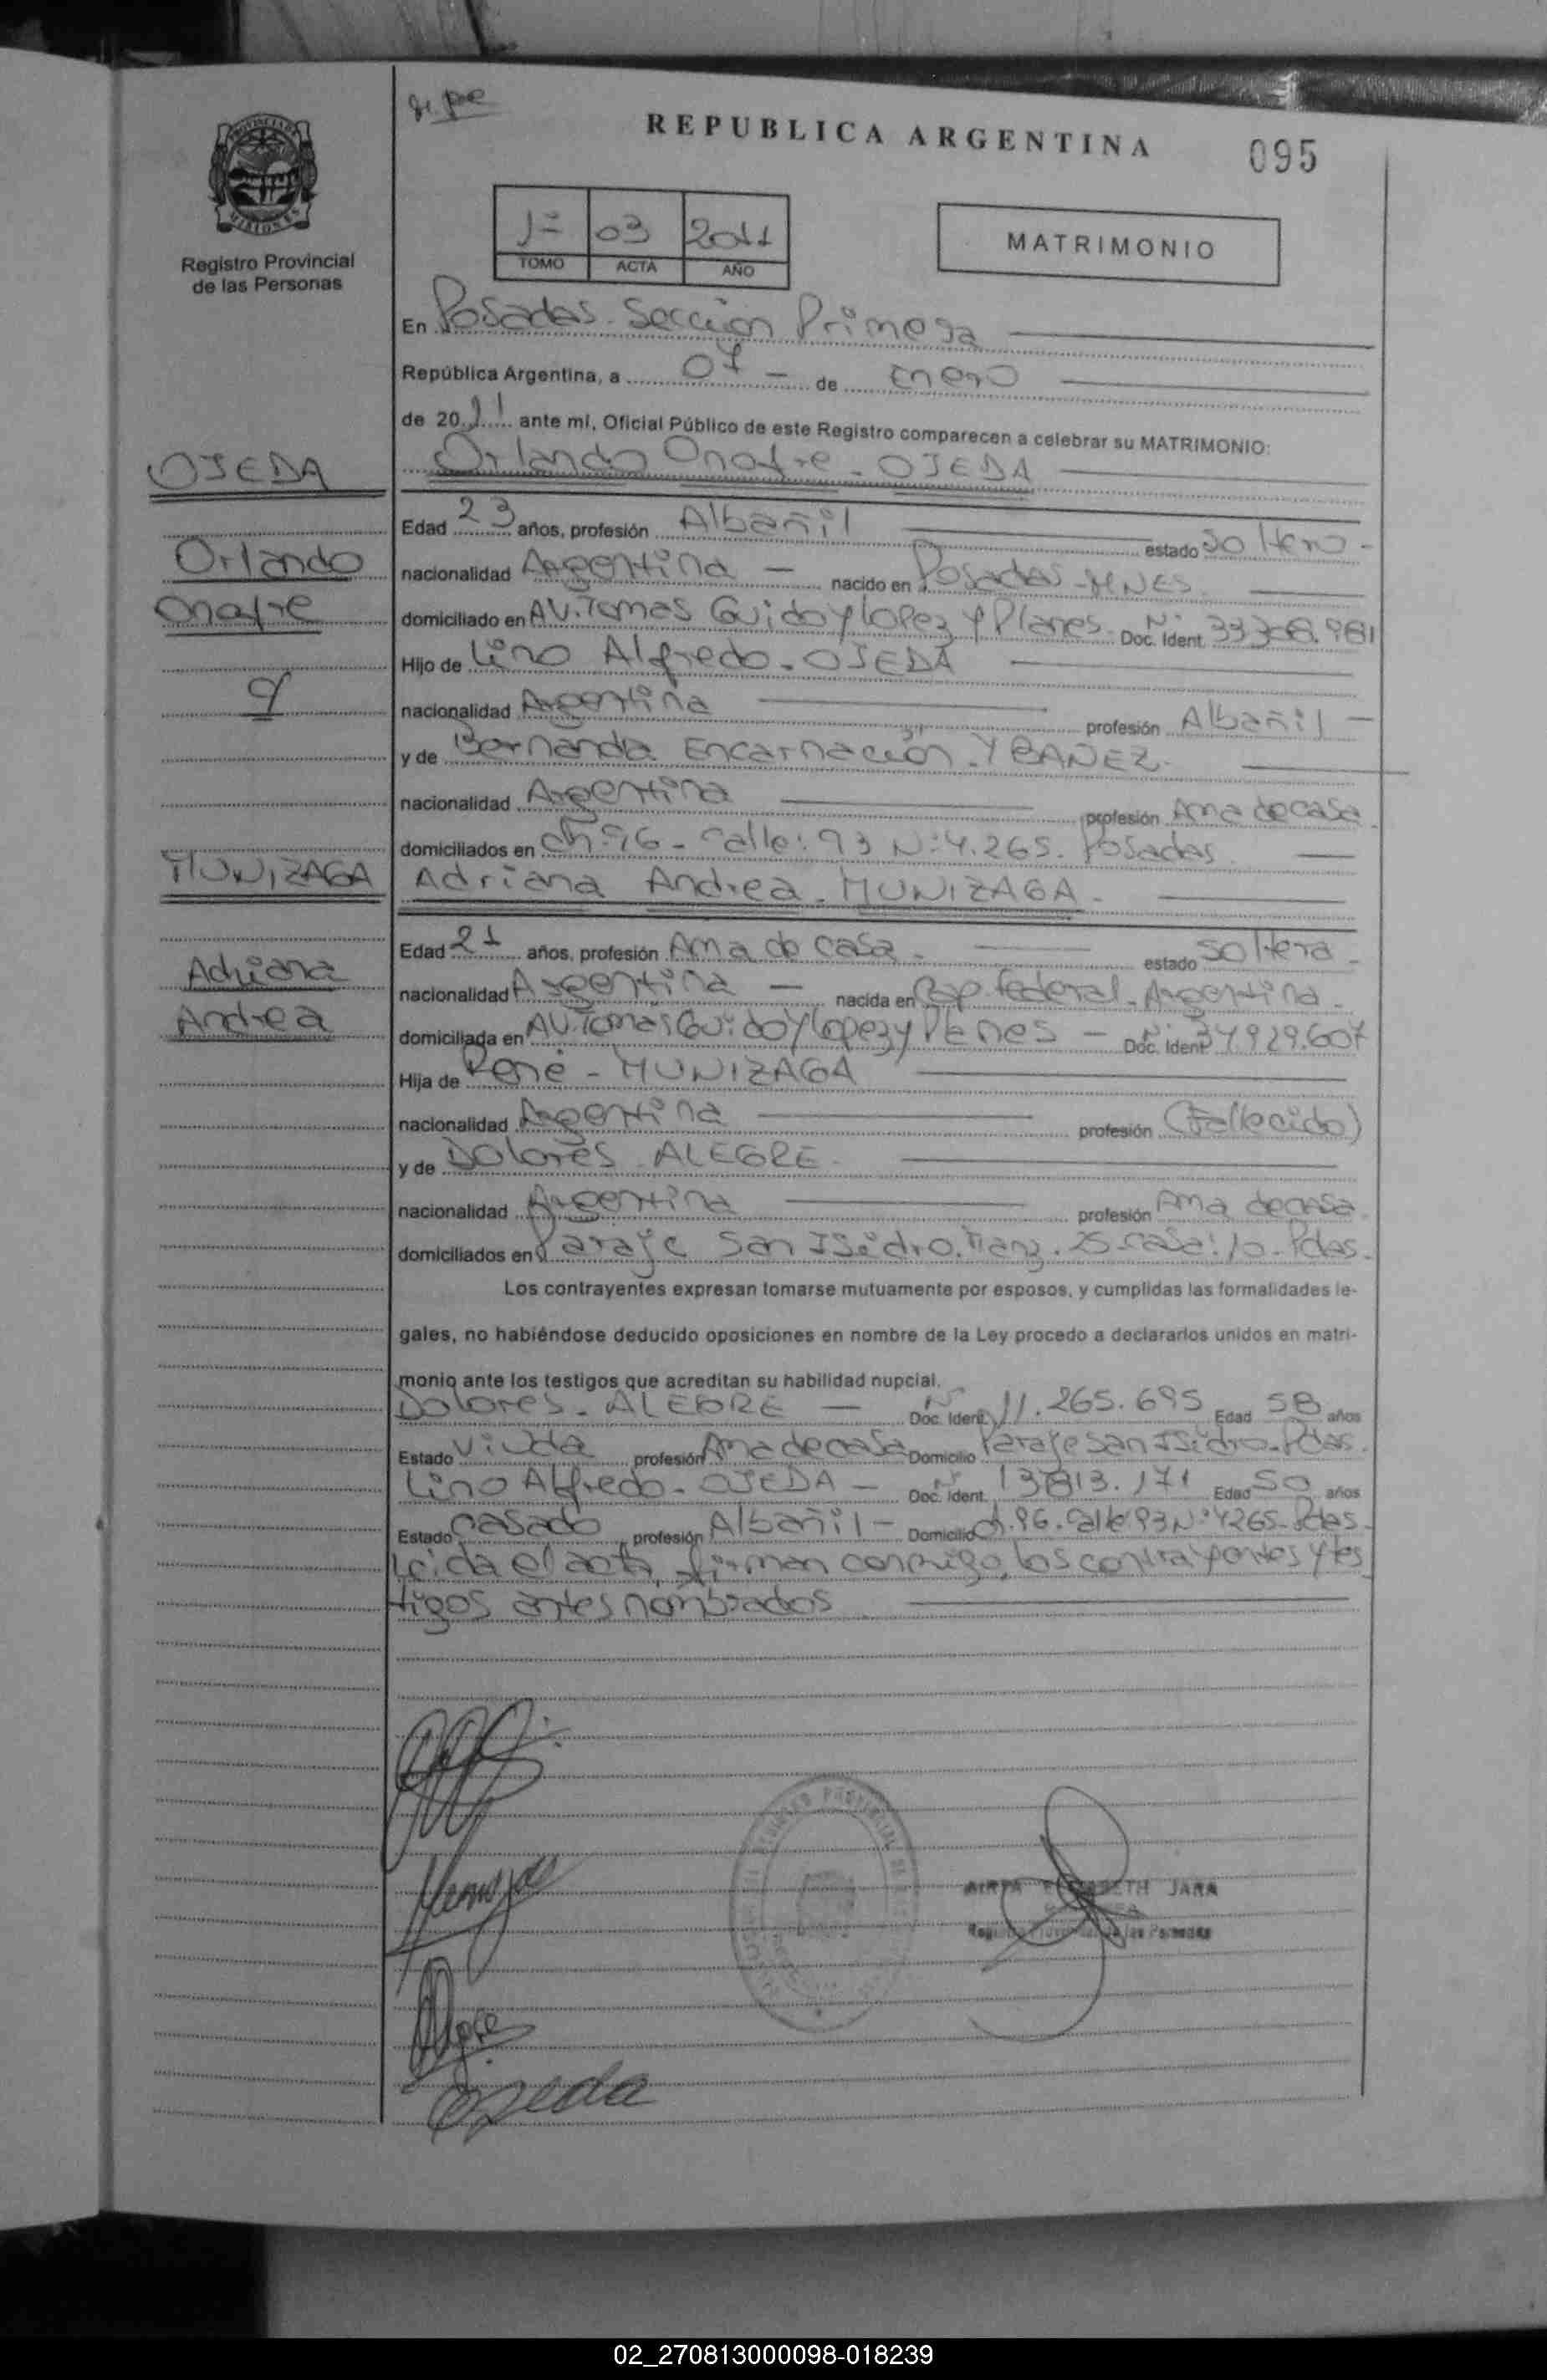 REPUBLICA ARGENTINA
095
PROVINCIA DE
MISIONES
Registro Provincial
de las Personas
1º 03 2011
TOMO ACTA AÑO
MATRIMONIO
En Posadas. Sección Primera
República Argentina, a 07 - de Enero
de 2011 ante mí, Oficial Público de este Registro comparecen a celebrar su MATRIMONIO:
OJEDA
Orlando Onofre - OJEDA
Edad 23 años, profesión Albañil estado Soltero -
Orlando
nacionalidad Argentina - nacido en Posadas - MNES.
Onofre
domiciliado en AV. Tomas Guido y Lopez y Planes - Nº Doc. Ident. 33.308.981
Hijo de Lino Alfredo - OJEDA
y
nacionalidad Argentina profesión Albañil -
y de Bernarda Encarnación - YBAÑEZ -
nacionalidad Argentina profesión Ama de casa
domiciliados en Ch: 96 - Calle: 93 N: 4.265. Posadas
MUNIZAGA
Adriana Andrea - MUNIZAGA -
Edad 21 años, profesión Ama de casa - estado Soltera -
Adriana
nacionalidad Argentina - nacida en Cap. federal - Argentina -
Andrea
domiciliada en AV. Tomas Guido y Lopez y Planes - Nº Doc. Ident. 34.929.607
Hija de René - MUNIZAGA
nacionalidad Argentina profesión (Fallecido)
y de Dolores - ALEGRE -
nacionalidad Argentina profesión Ama de casa
domiciliados en Paraje San Isidro. Manz. 25 - casa: 10 - Pdas.
Los contrayentes expresan tomarse mutuamente por esposos, y cumplidas las formalidades le-
gales, no habiéndose deducido oposiciones en nombre de la Ley procedo a declararlos unidos en matri-
monio ante los testigos que acreditan su habilidad nupcial.
Dolores - ALEGRE - Nº Doc. Ident. 11.265.695 Edad 58 años
Estado Viuda profesión Ama de casa Domicilio Paraje San Isidro - Pdas.
Lino Alfredo - OJEDA - Nº Doc. Ident. 13.813.171 Edad 50 años
Estado Casado profesión Albañil - Domicilio Ch. 96. Calle 93 N: 4265 - Pdas.
Leida el acta, firman conmigo, los contrayentes y tes
tigos antes nombrados
JARA
Ojeda
02_270813000098-018239